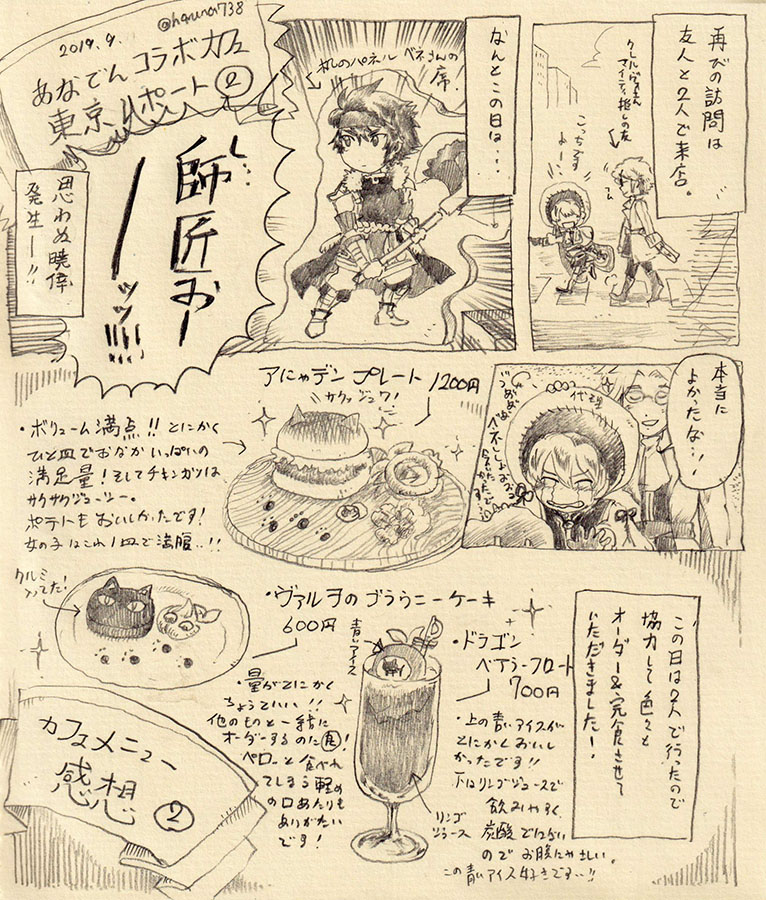 @haruna738
2019.9.
あなでんコラボカフェ
東京リポート②
再びの訪問は
友人と2人で来店。
マイティ推しの友
こっちです
よー
なんとこの日は・・・
札のパネル
ベネさんの
席.
し…
師匠おー
ーッッ!!!
思わぬ暁倖
発生ー!!
本当に
よかったな…!
代理
アにゃデン プレート 1200円
サクッジュワ!
・ボリューム満点!! とにかく
ひと皿でおなかいっぱいの
満足量! そしてチキンカツは
サクサクジューシー。
ポテトもおいしかったです!
女の子はこれ1皿で満腹..!!
クルミ
入ってた!
・ヴァルヲのブラウニーケーキ
600円
・量がとにかく
ちょうどいい!!
他のものと一緒に
オーダーするのに良!
ペローと食べれ
てしまう軽め
の口あたりも
ありがたい
です!
青いアイス
+
・ドラゴン
ベイアラーフロート
700円
・上の青いアイスが
とにかくおいし
かったです!!
下はリンゴジュースで
飲みやすく
炭酸ではない
ので お腹にやさしい。
この青いアイス好きです…!!
リンゴ
ジュース
この日は2人で行ったので
協力して色々と
オーダー&完食させて
いただきました!
カフェメニュー
感想
②